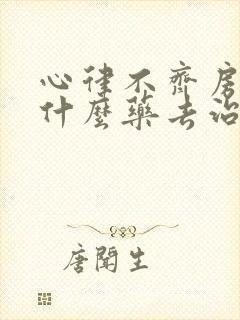 心律不齊房
什麼藥去治
唐聞生